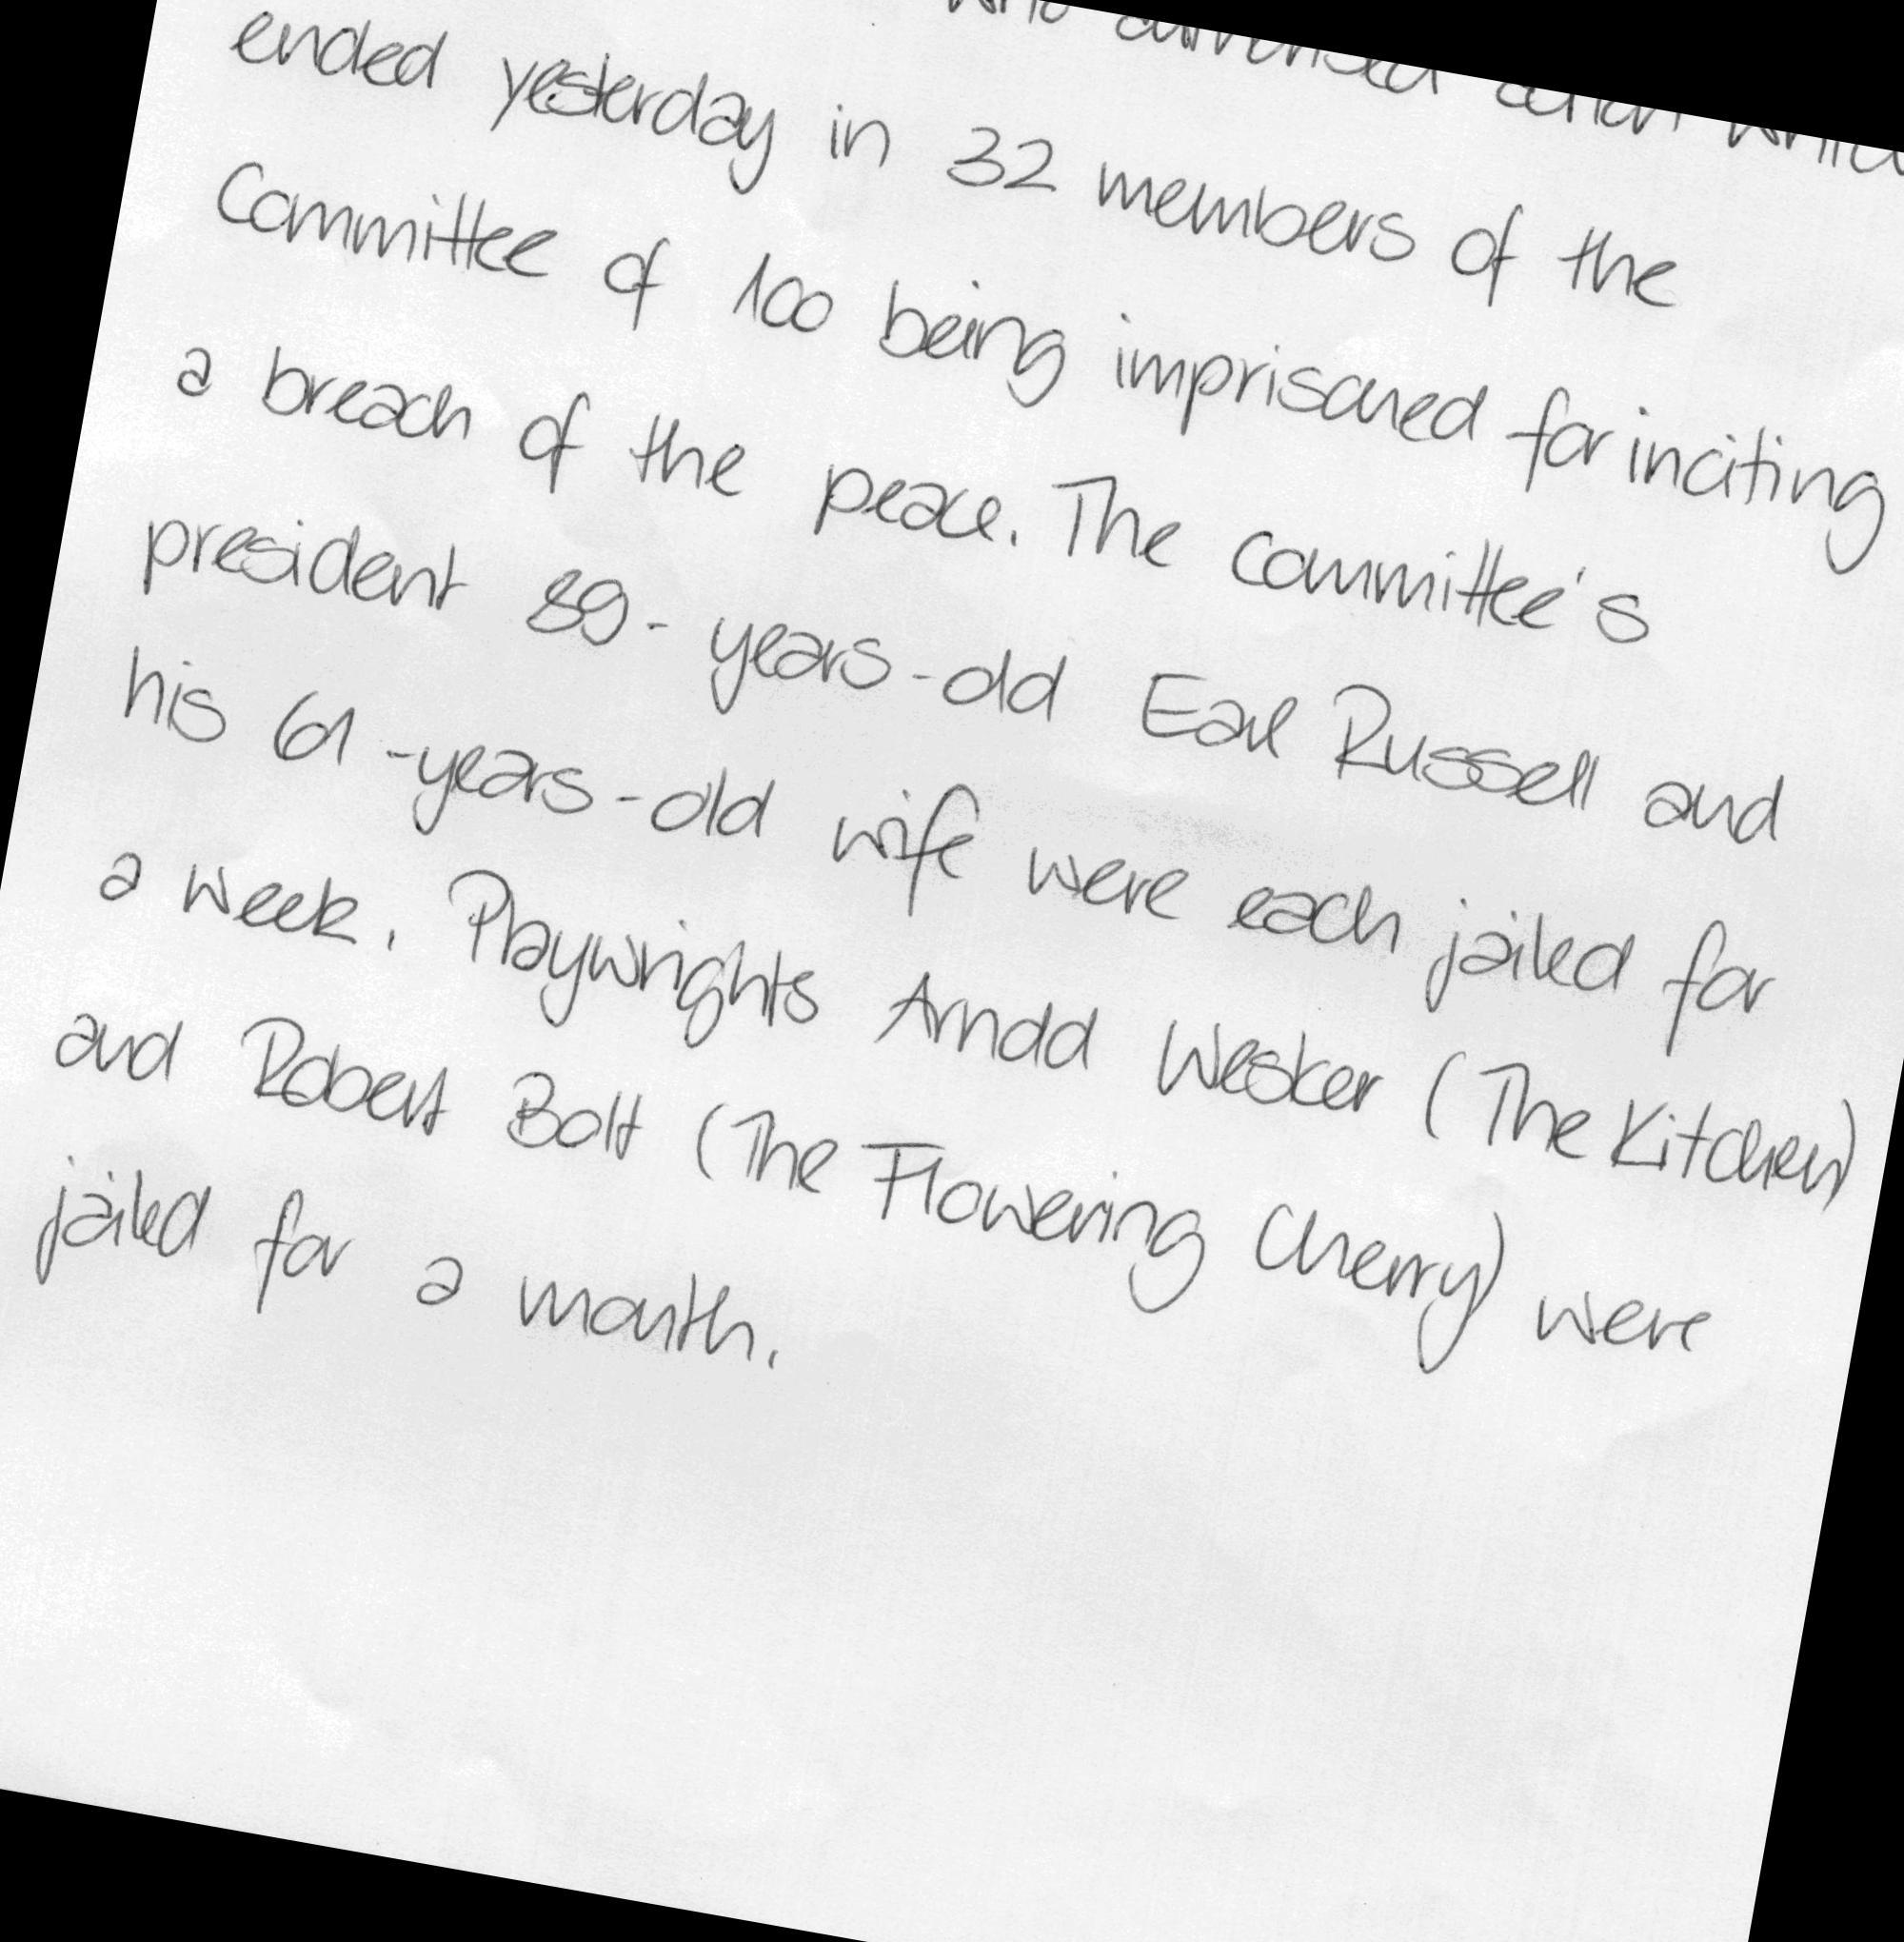 ended yesterday in 32 members of the
Committee of 100 being imprisoned for inciting
a breach of the peace. The committee's
president 89-years-old Earl Russell and
his 61-years-old wife were each jailed for
a week. Playwrights Arnold Wesker (The Kitchen)
and Robert Bolt (The Flowering Cherry) were
jailed for a month.